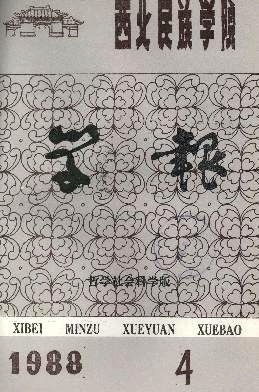 西北民族学院
学报
哲学社会科学版
XIBEI MINZU XUEYUAN XUEBAO
1988 4